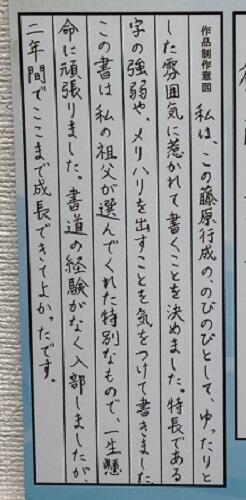 作品制作意図
私は、この藤原行成の、のびのびとして、ゆったりと
した雰囲気に惹かれて書くことを決めました。特長である
字の強弱や、メリハリを出すことを気をつけて書きました
この書は私の祖父が選んでくれた特別なもので、一生懸
命に頑張りました。書道の経験がなく入部しましたが、
二年間でここまで成長できてよかったです。